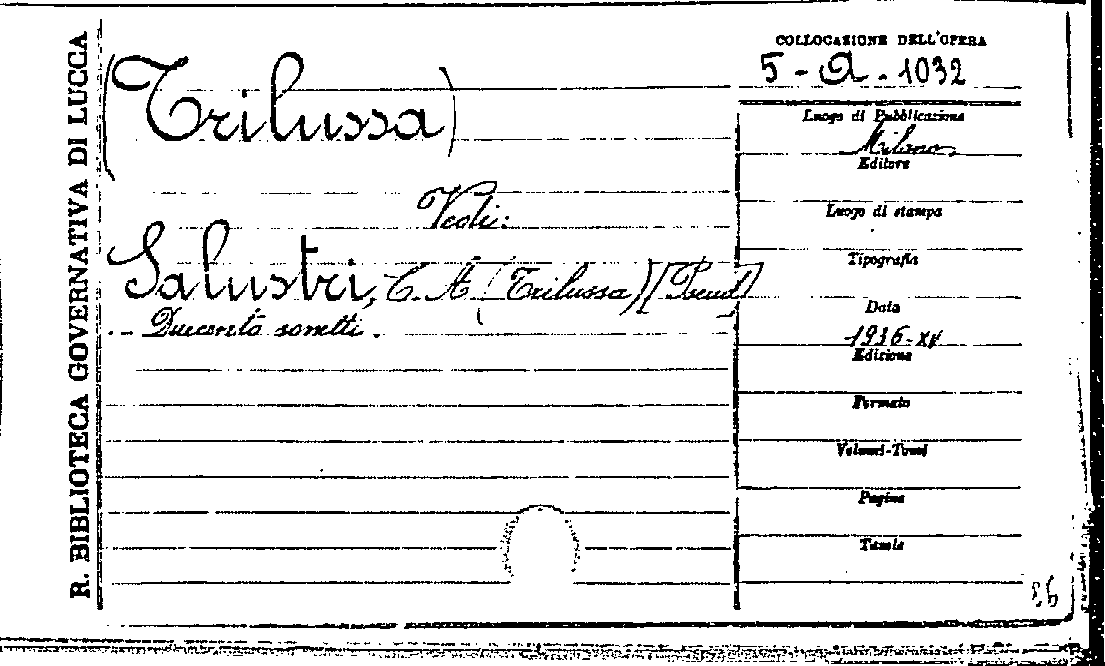 R. BIBLIOTECA GOVERNATIVA DI LUCCA
COLLOCAZIONE DELL'OPERA
5 - A - 1032
(Trilussa)
Vedi:
Salustri, C. A. (Trilussa) [Pseud]
Duecento sonetti.
Luogo di Pubblicazione
Milano
Editore
Luogo di stampa
Tipografia
Data
1936-XV
Edizione
Formato
Volumi-Tomi
Pagine
Tavole